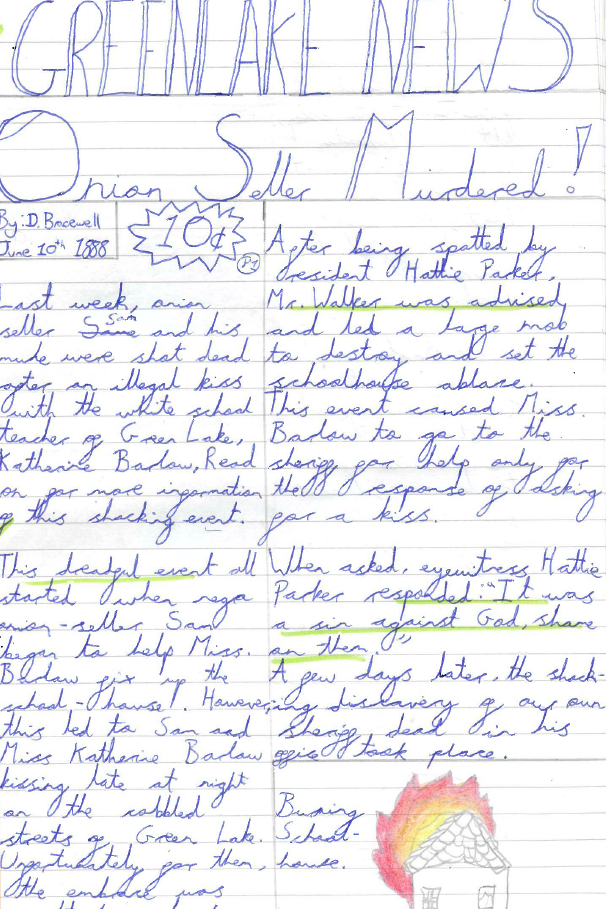 GREENLAKE NEWS
Onion Seller Murdered!
By: D. Bracewell
June 10th 1888
10¢
P1
Last week, onion
Sam
seller Same and his
mule were shot dead
after an illegal kiss
with the white school
teacher of Green Lake,
Katherine Barlow, Read
on for more information
of this shocking event.
This dreadful event all
started when
onion-seller Sam
began to help Miss.
Barlow fix up the
school,-house!. However,
this led to Sam and
Miss Katherine Barlow
kissing late at night
on the cobbled
streets of Green Lake.
Unfortunately for them,
the embrace was
After being spotted by
resident Hattie Parker,
Mr. Walker was advised
and led a large mob
to destroy and set the
schoolhouse ablaze.
This event caused Miss.
Barlow to go to the
sheriff for help only for
the response of asking
for a kiss.
When asked, eyewitness Hattie
Parker responded: "It was
a sin against God, shame
on them."
A few days later, the shock-
ing discovery of our own
sheriff dead in his
office took place.
Burning
School-
house.